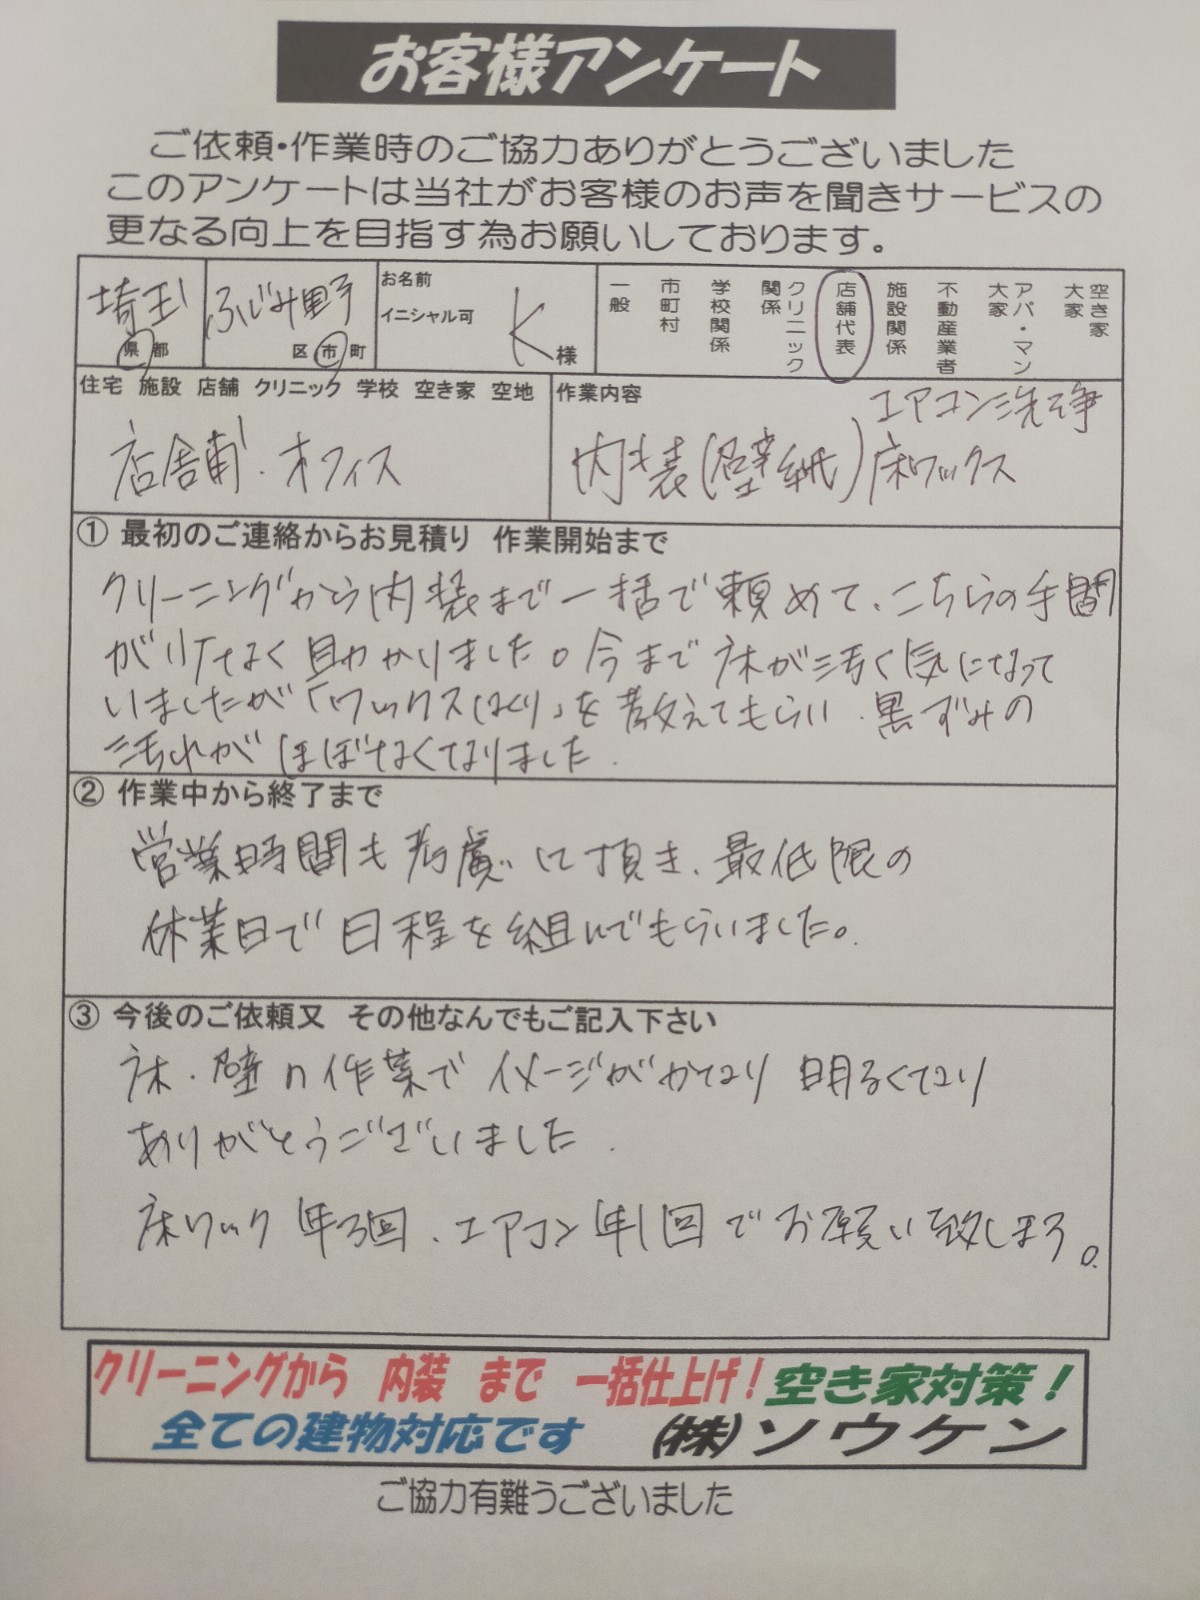 お客様アンケート
ご依頼・作業時のご協力ありがとうございました
このアンケートは当社がお客様のお声を聞きサービスの
更なる向上を目指す為お願いしております。
埼玉 県 都
ふじみ野 区 市 町
お名前
イニシャル可
K 様
一般
市町村
学校関係
クリニック関係
店舗代表
施設関係
不動産業者
アパ・マン大家
空き家大家
住宅 施設 店舗 クリニック 学校 空き家 空地
店舗・オフィス
作業内容
エアコン洗浄
内装(壁紙) 床ワックス
① 最初のご連絡からお見積り 作業開始まで
クリーニングから内装まで一括で頼めて、こちらの手間
がけなく助かりました。今まで床が汚く気になって
いましたが「ワックスはくり」を教えてもらい、黒ずみの
汚れがほぼなくなりました.
② 作業中から終了まで
営業時間も考慮して頂き、最低限の
休業日で日程を組んでもらいました。
③ 今後のご依頼又 その他なんでもご記入下さい
床・壁の作業でイメージがかなり明るくなり
ありがとうございました.
床ワック 年3回、エアコン年1回でお願い致します。
クリーニングから 内装 まで 一括仕上げ！空き家対策！
全ての建物対応です (株)ソウケン
ご協力有難うございました